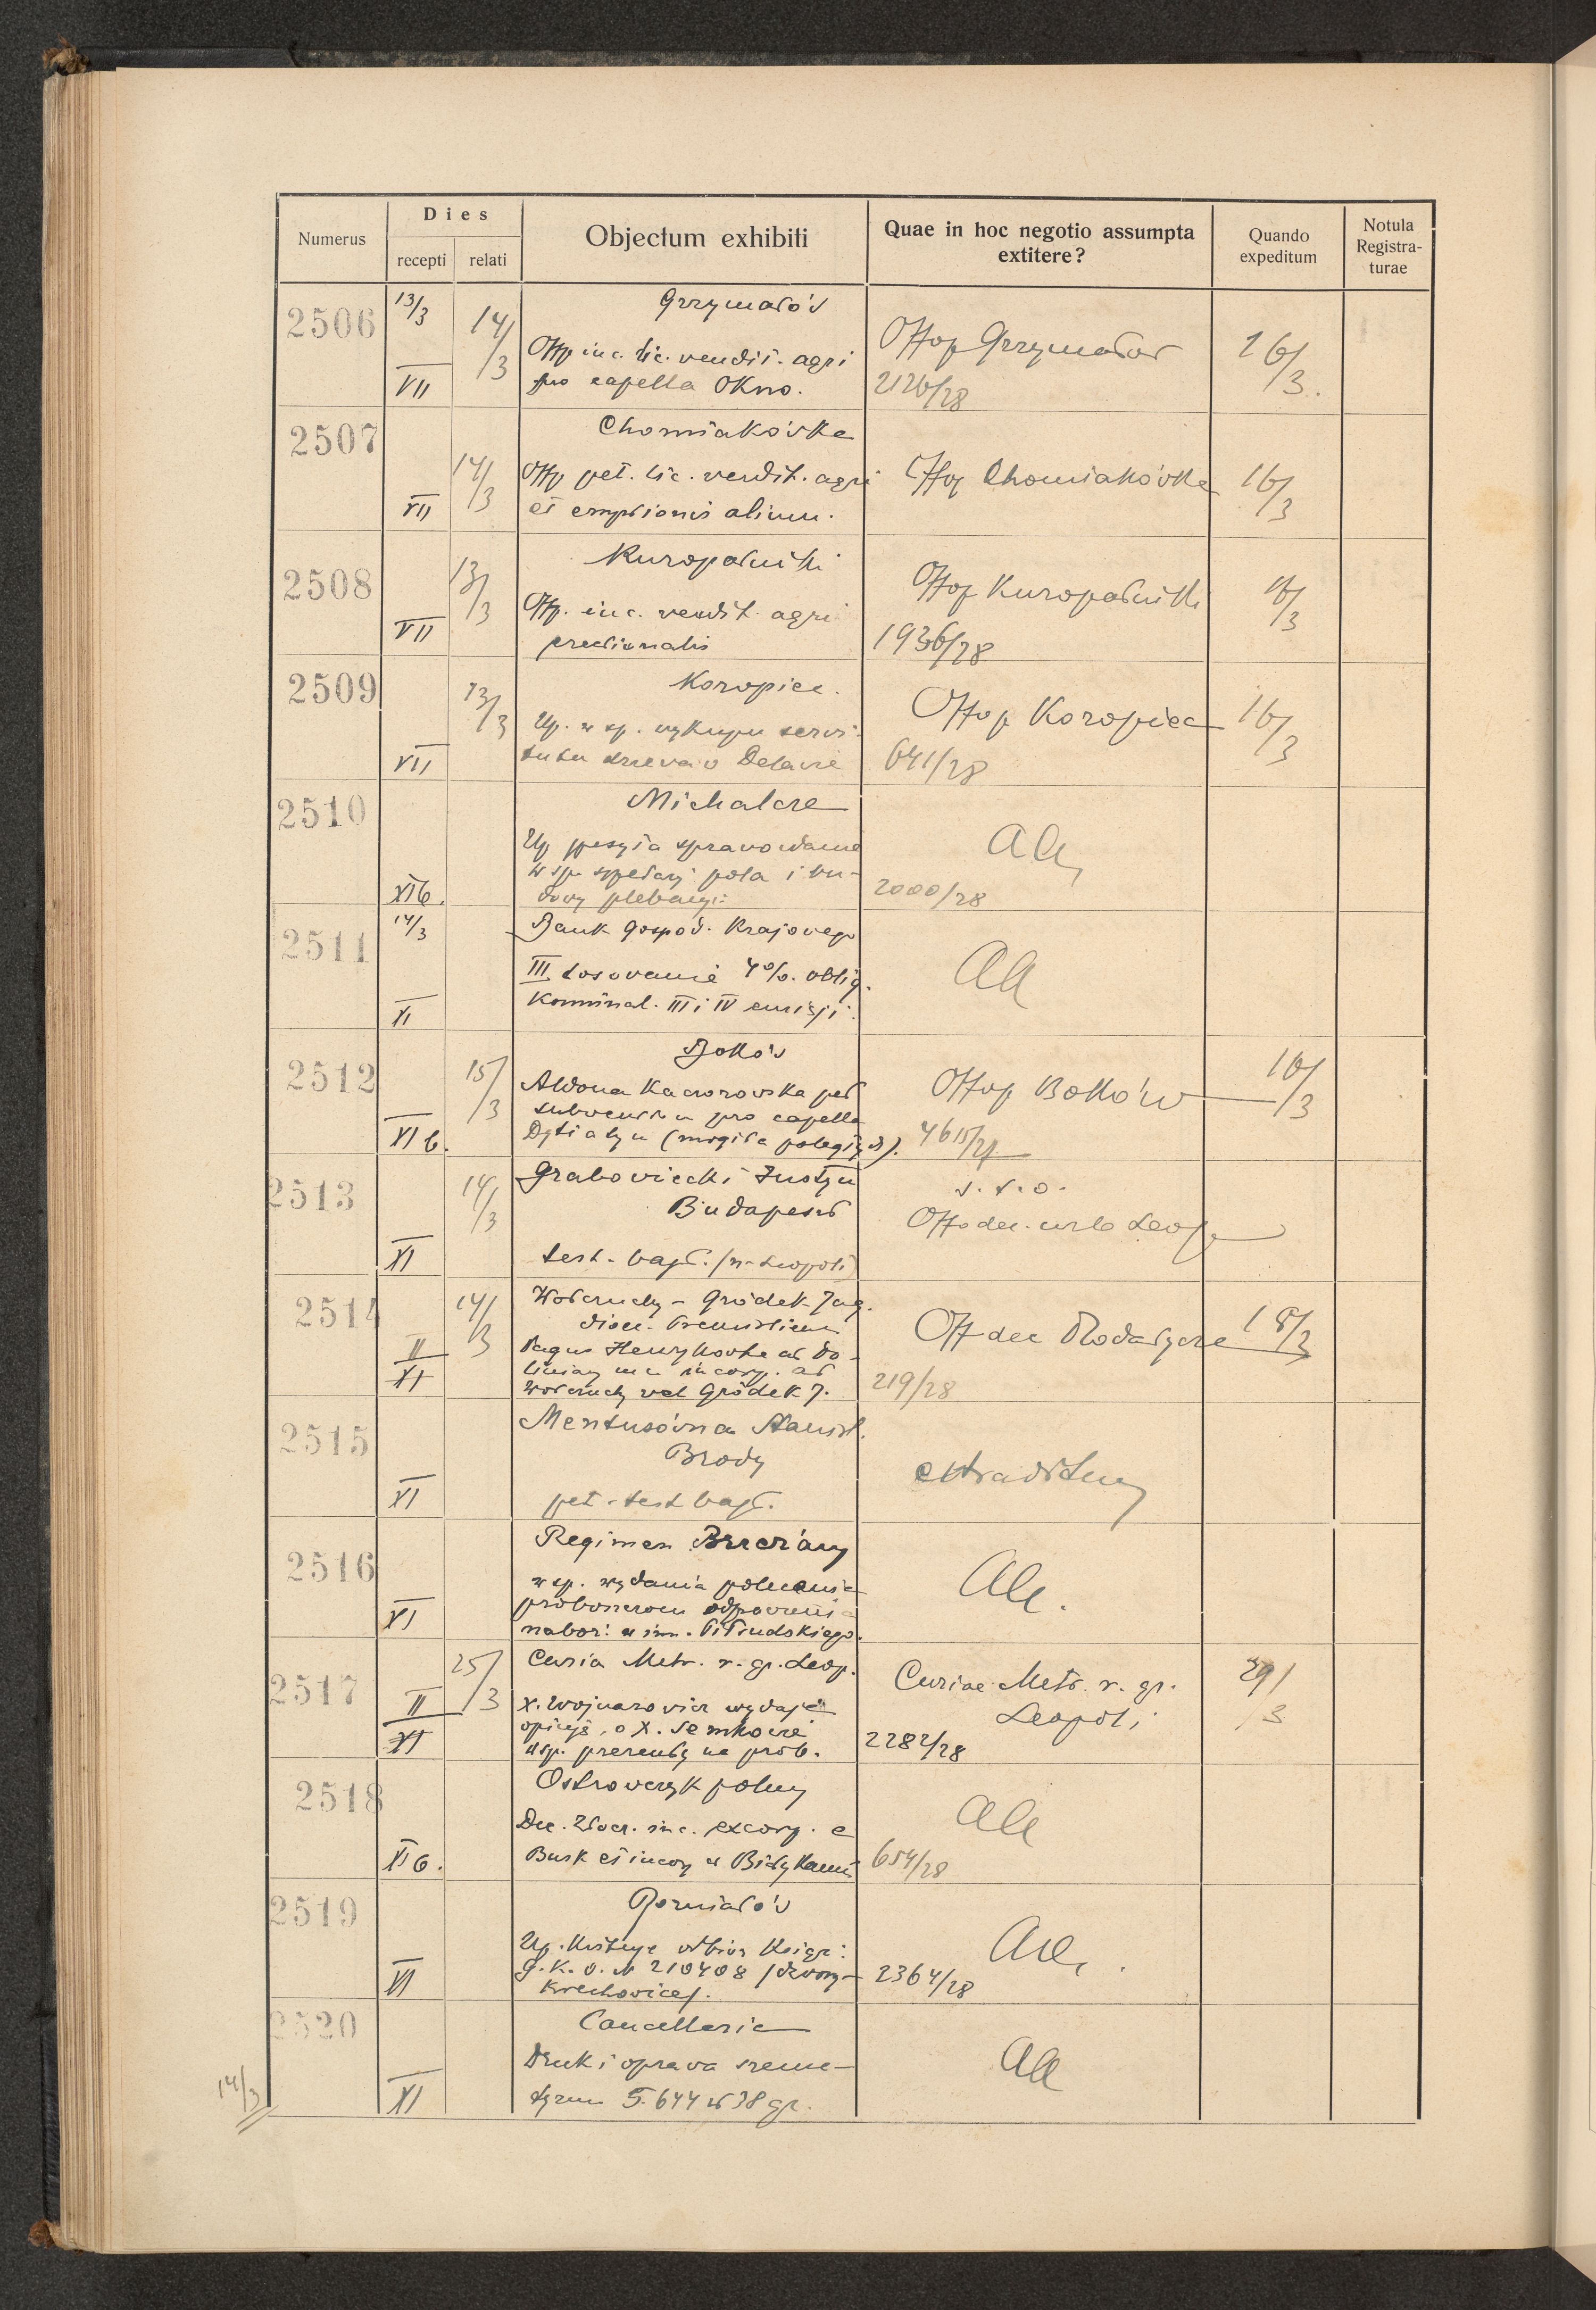 Numerus
Dies
recepti relati
Objectum exhibiti
Quae in hoc negotio assumpta extitere?
Quando expeditum
Notula Registra-turae
2506 13/3 VII 14/3
Grzymałów
Offp inc. lic. vendit. agri
pro capella Okno.
Offop Grzymałow
2126/28
16/3.
2507 VII 14/3
Chomiakówka
Offp pet. lic. vendit. agri
et emptionis alium.
Offop Chomiakówka
16/3
2508 VII 13/3
Kuropatniki
Offp. inc. vendit. agri
Offop Kuropatniki
1936/28
16/3
2509 VII 13/3
Koropiec.
Up. w sp. wykupu serwi-
tutu drzewa w Delawie
Offop Koropiec
641/28
16/3
2510 XIb.
Michalcze
Up sprawozdanie
w sp. pola i bu-
dowy plebanji
Aa
2000/28
2511 14/3 XI
Bank Gospod. Krajowego
III Losowanie 4%. oblig.
Komunal. III i IV emisji.
Aa
2512 XIb. 15/3
Bołków
Aldona Kaczorowska pet
subventiu pro capella
Dytiatyn (mogiła poległych).
Offop Bołków
4615/27
16/3
2513 XI 14/3
Grabowiecki Justyn
Budapest
test. bapt. (n. Leopoli)
s. t. o.
Off dec. urb Leop
2514 II XI 14/3
Wołczuchy - Gródek Jag.
dioec. Premisliens
Pagus Henrykówka
incorp. ad
Wołczuchy vel Gródek J.
Off dec Rodatycze
219/28
18/3
2515 XI
Mentusówna Stanisł.
Brody
pet. test bapt.
extraditum
2516 XI
Regimen Brzeżany
w sp. wydania polecenia
proboszczom odprawienia
naboż. w im. Piłsudskiego.
Aa.
2517 II XI 25/3
Curia Metr. r. gr. Leop.
X. Wojnarowicz wydaje
opinję o X. Semkowie
w sp. prezenty na prob.
Curiae Metr. r. gr.
Leopoli
2282/28
29/3
2518 XIb.
Ostrowczyk polny
Dec. Złocz. inc. excorp. e
Busk et incorp ad Biały Kamień
Aa
654/28
2519 VI
Rozniatów
Up. Kwituje odbiór Książ:
G. K. O. N 210408
Krechowice).
Aa.
2364/28
2520 XI
Cancellaria
Druk i oprawa szema-
tyzmu 5.644 zł 38 gr.
Aa
14/3